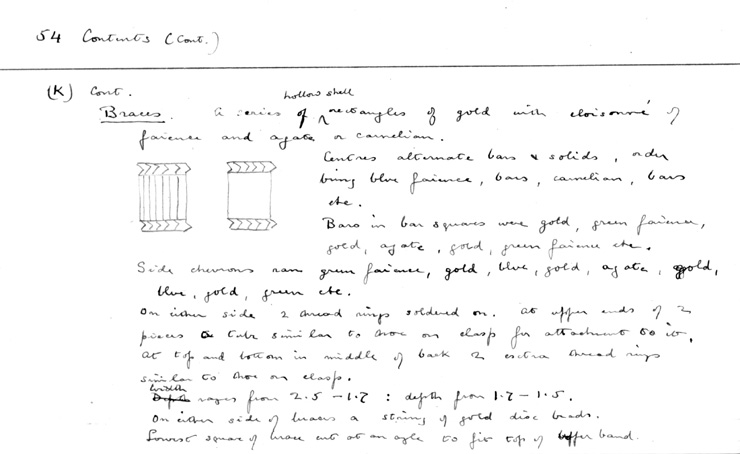 54 Contents (Cont.)
(K) Cont.
hollow shell
Braces. A series of rectangles of gold with cloisonné of
faience and agate or carnelian.
Centres alternate bars & solids, order
being blue faience, bars, carnelian, bars
etc.
Bars in bar squares were gold, green faience,
gold, agate, gold, green faience etc.
Side chevrons ran green faience, gold, blue, gold, agate, gold,
blue, gold, green etc.
On either side 2 thread rings soldered on. At upper ends of 2
pieces a tube similar to those on clasp for attachment to it.
At top and bottom in middle of back 2 extra thread rings
similar to those on clasp.
Width
Depth ranges from 2.5 - 1.7 : depth from 1.7 - 1.5.
On either side of braces a string of gold disc beads.
Lowest square of brace cut at an angle to fit top of upper band.